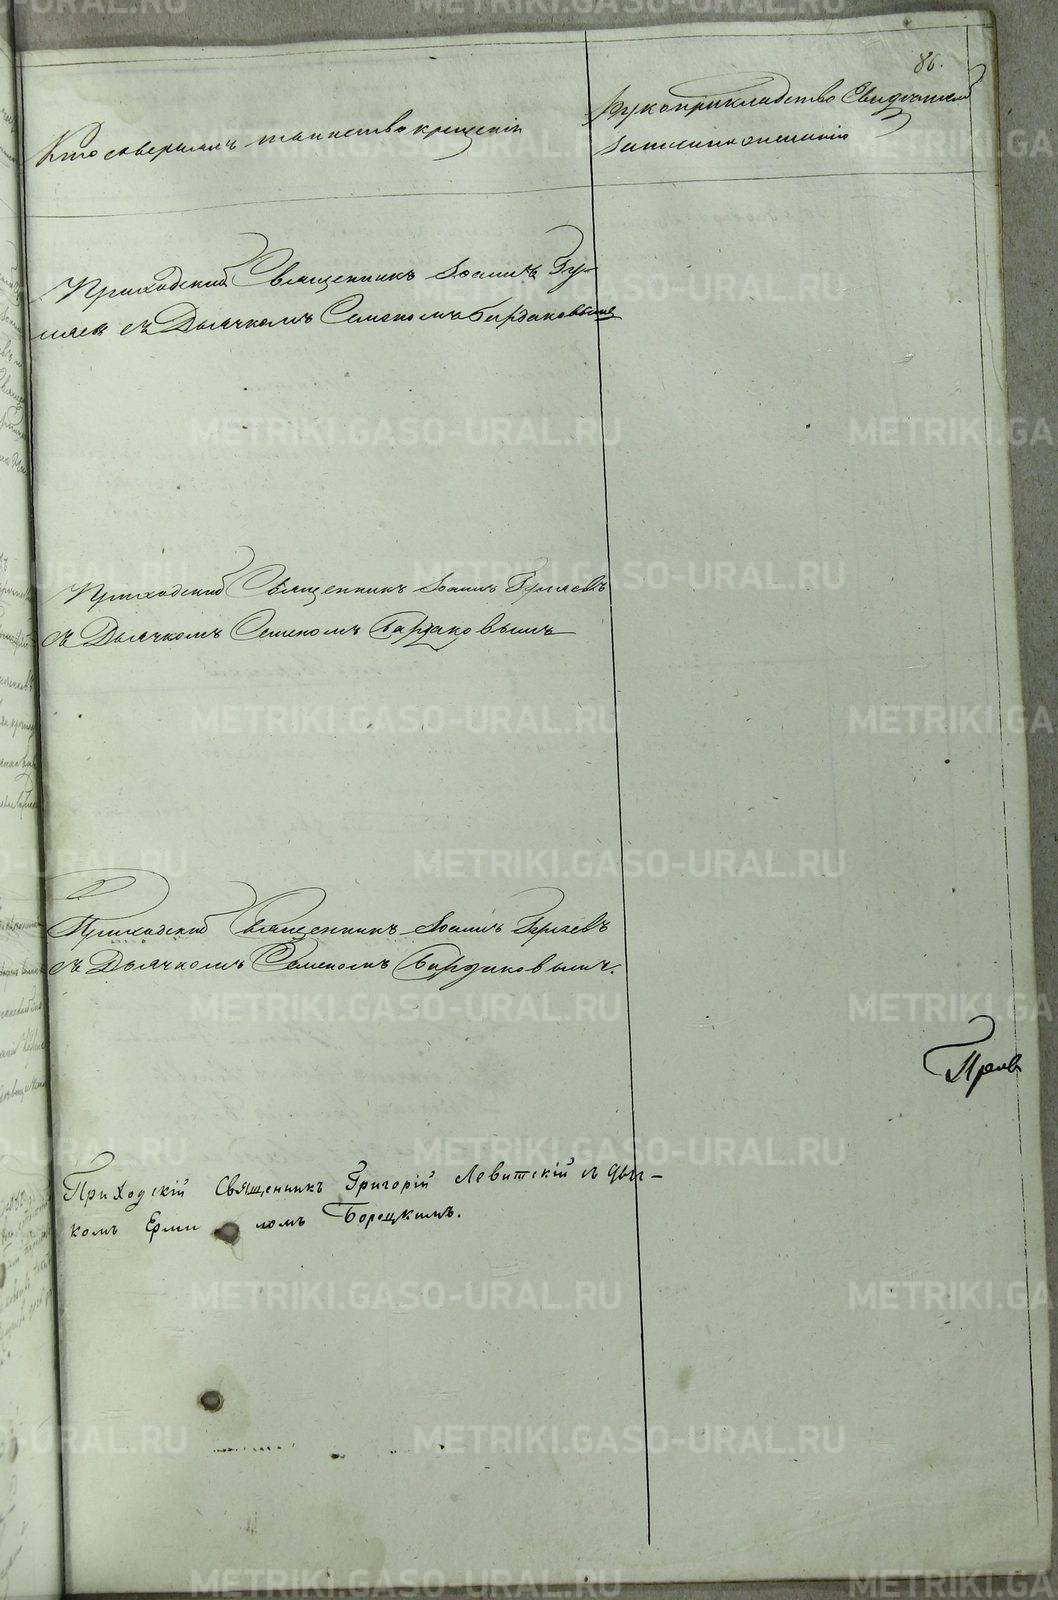 86.
Кто совершалъ таинство крещенія
Рукоприкладство Свидѣтелей
записи по желанію
Приходский Священникъ Іоаннъ
съ Дьячкомъ Семеномъ Бардаковымъ
Приходский Священникъ Іоаннъ
съ Дьячкомъ Семеномъ Бардаковымъ
Приходский Священникъ Іоаннъ
съ Дьячкомъ Семеномъ Бардаковымъ.
Приходскій Священникъ Григорій Левитскій съ дьяч-
комъ Борецкимъ.
METRIKI.GASO-URAL.RU